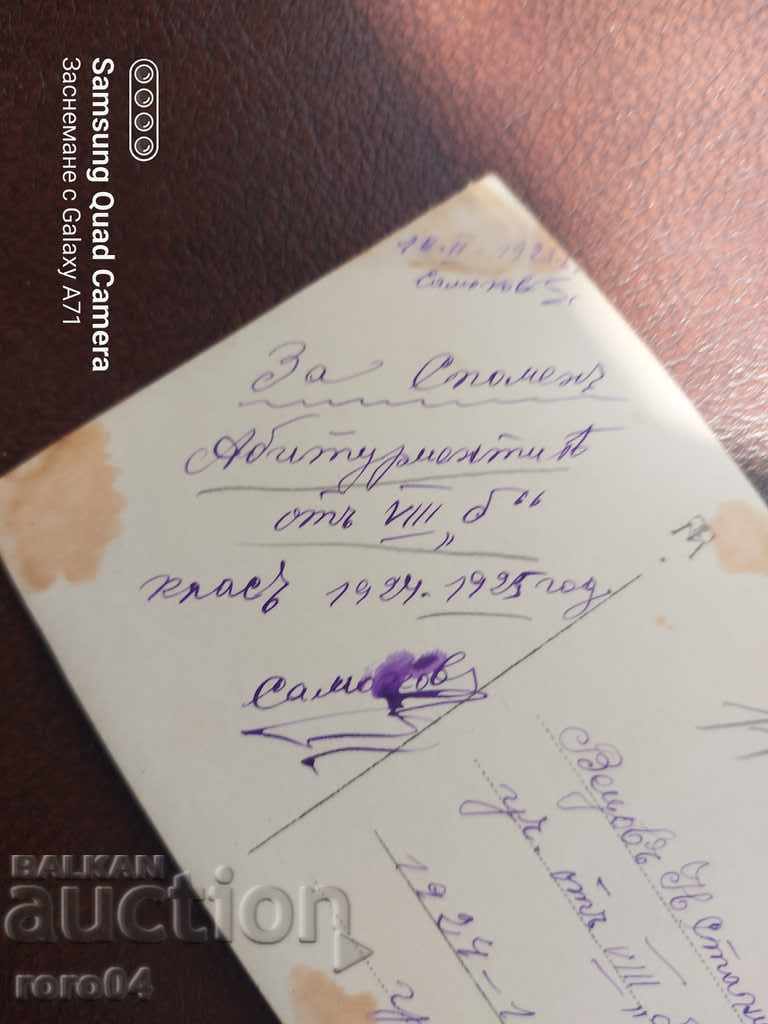 Samsung Quad Camera
Заснемане с Galaxy A71
Самоков
За Споменъ
Абитурментитѣ
отъ VIII „б“
класъ 1924-1925 год.
Самоков
отъ VIII „б
1924 - 1
BALKAN
auction
roro04